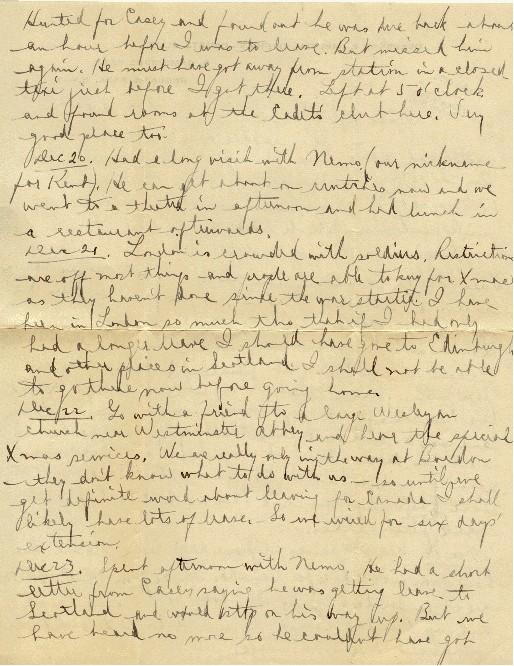 Hunted for Casey and found out he was due back about
an hour before I was to leave. But missed him
again. He must have got away from station in a closed
taxi just before I got there. Left at 5 o'clock
and found rooms at the Cadets club here. Very
good place too.
Dec 20. Had a long visit with Nemo (our nickname
for Kent). He can get about on crutches now and we
went to a theatre in afternoon and had lunch in
a restaurant afterwards.
Dec 21. London is crowded with soldiers. Restrictions
are off most things and people are able to buy for Xmas
as they haven't done since the war started. I have
been in London so much tho that if I had only
had a longer leave I should have gone to Edinburgh
and other places in Scotland I shall not be able
to go there now before going home.
Dec 22. Go with a friend to a large Wesleyan
church near Westminster Abbey and hear the special
Xmas services. We are really only in the way at
— they don't know what to do with us — so until we
get definite word about leaving for Canada I shall
likely have lots of leave. So we wired for six days'
extension.
Dec 23. Spent afternoon with Nemo. He had a short
letter from Casey saying he was getting leave to
Scotland and would stop on his way up. But we
have heard no more so he couldn't have got